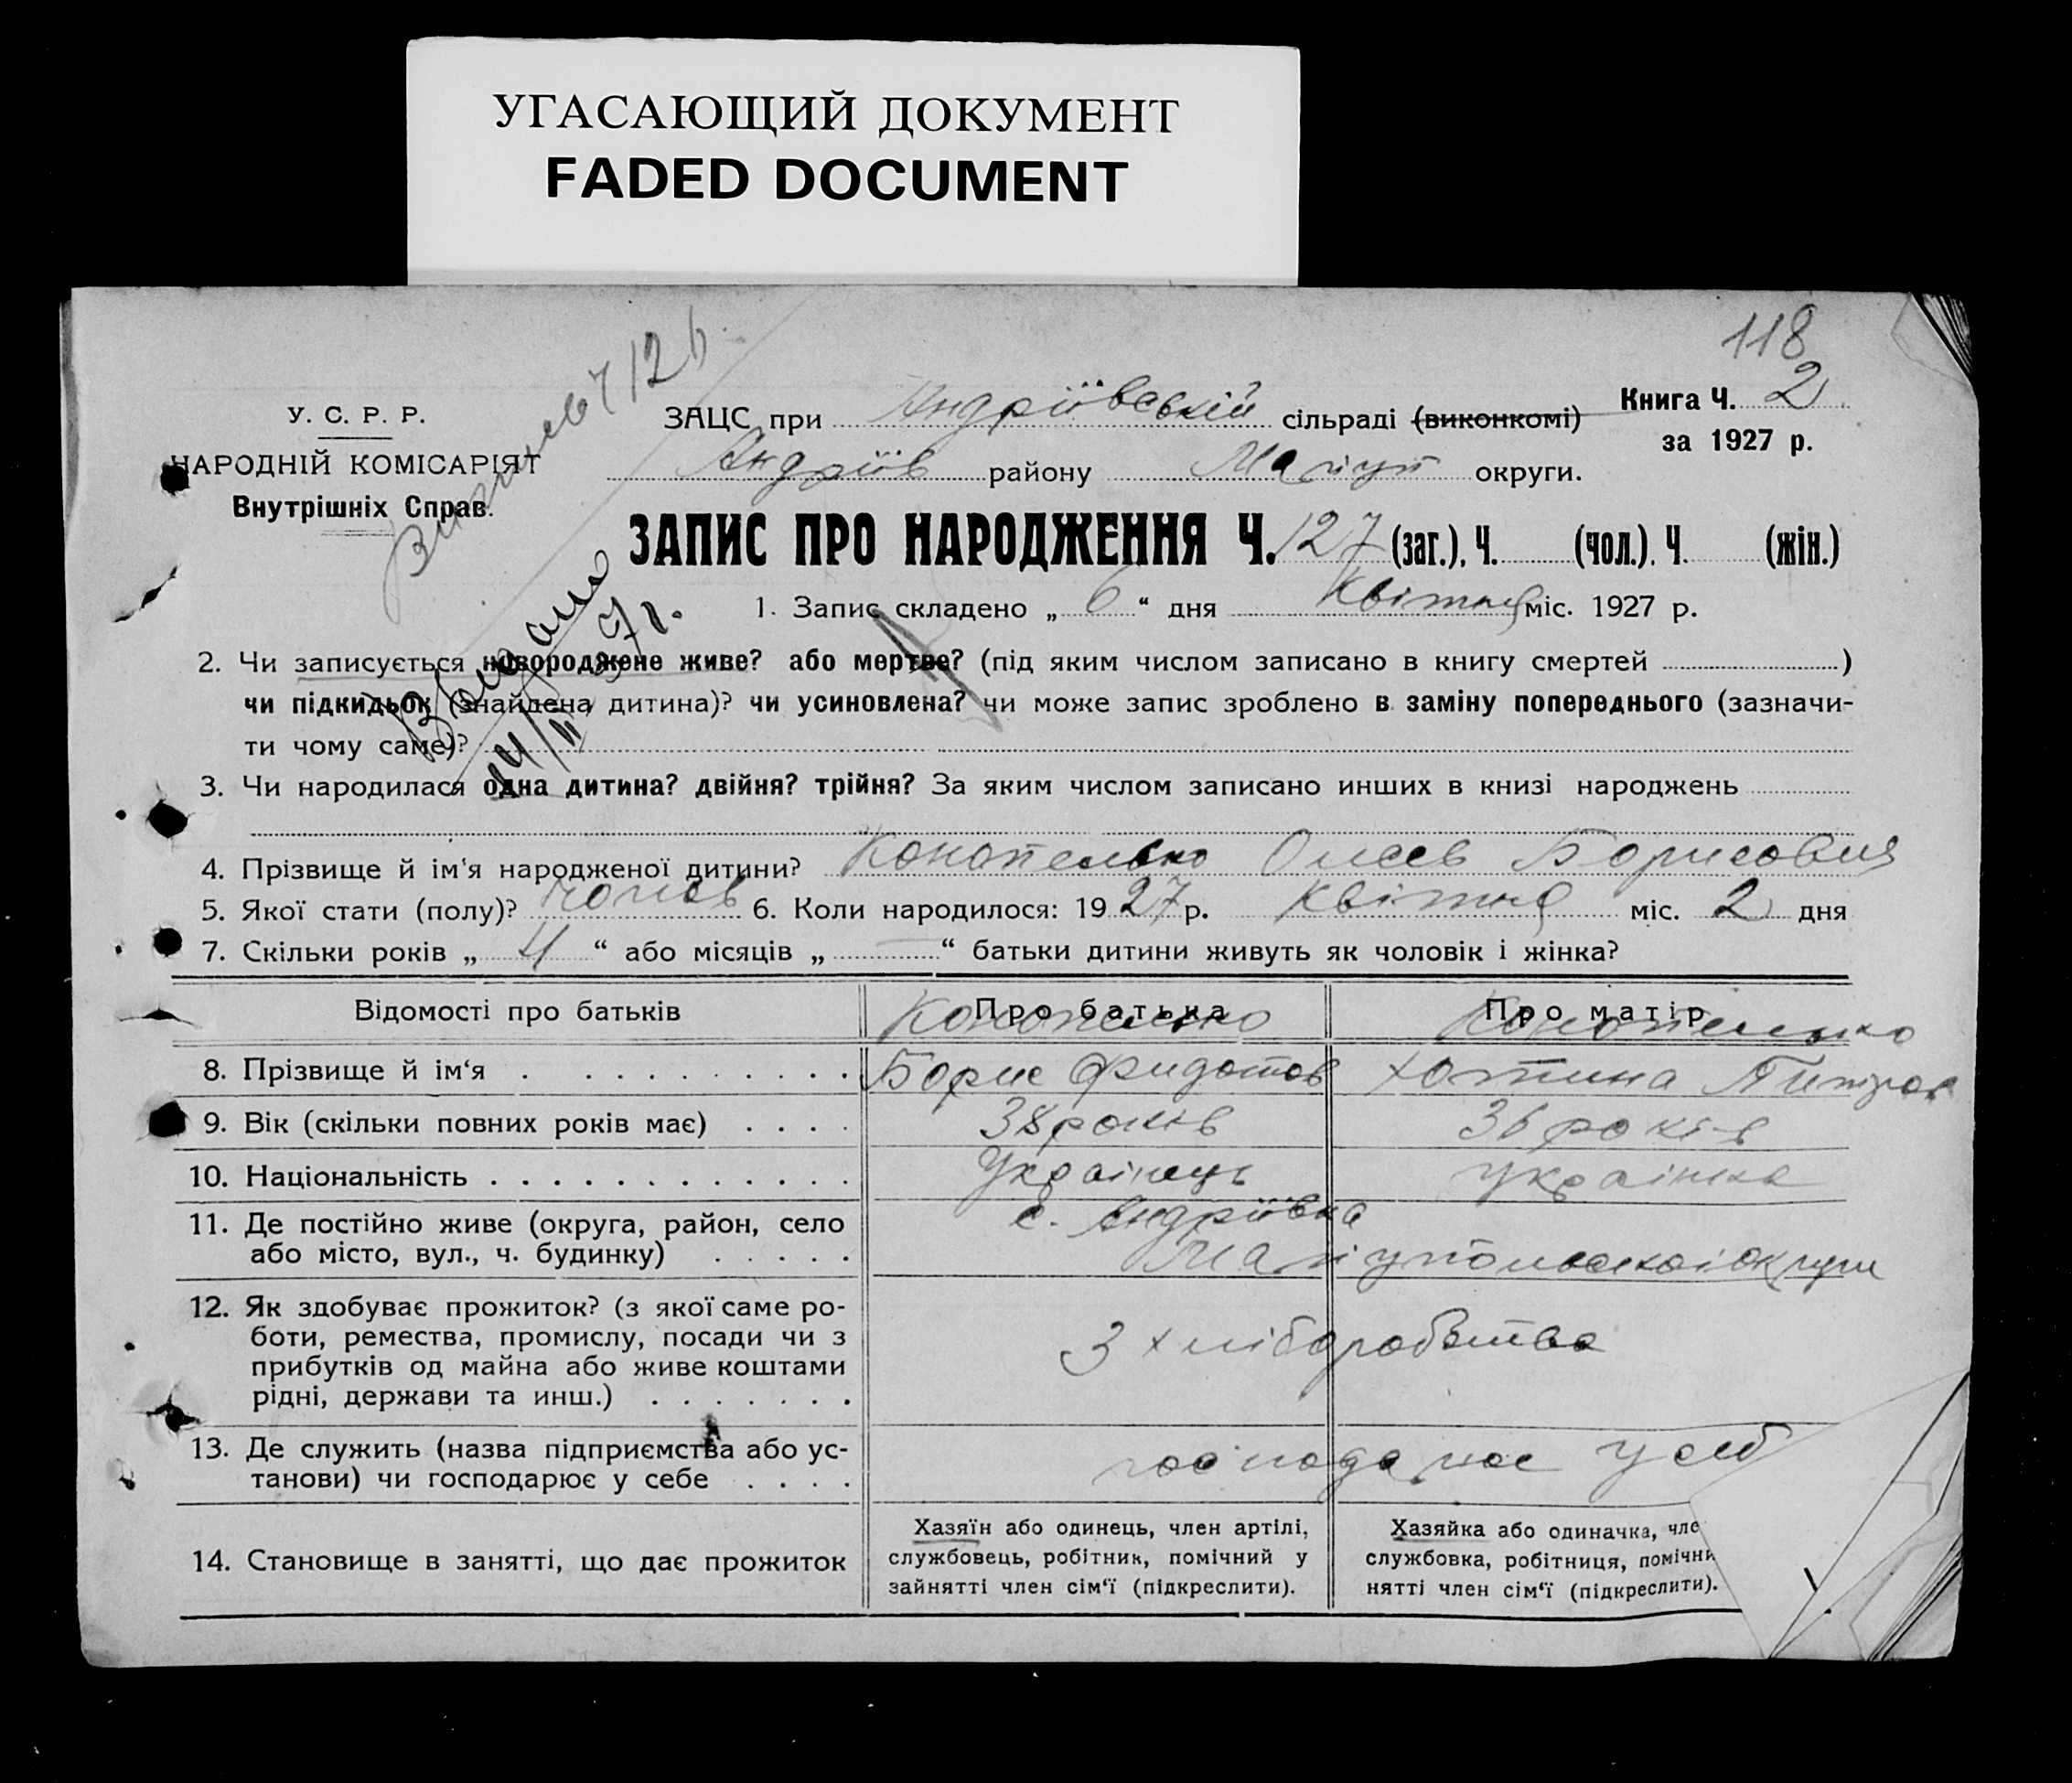 УГАСАЮЩИЙ ДОКУМЕНТ
FADED DOCUMENT
118
Книга Ч. 2
за 1927 р.
У. С. Р. Р.
НАРОДНІЙ КОМІСАРІЯТ
Внутрішніх Справ.
ЗАЦС при Андріївській сільраді (виконкомі)
Андріїв району Маріуп округи.
ЗАПИС ПРО НАРОДЖЕННЯ Ч. 127 (заг.), Ч. (чол.), Ч. (жін.)
1. Запис складено „ 6 “ дня Квітня міс. 1927 р.
2. Чи записується новороджене живе? або мертве? (під яким числом записано в книгу смертей )
чи підкидьок (знайдена дитина)? чи усиновлена? чи може запис зроблено в заміну попереднього (зазначи-
ти чому саме)?
3. Чи народилася одна дитина? двійня? трійня? За яким числом записано инших в книзі народжень
4. Прізвище й ім'я народженої дитини? Конопелько Борисович
5. Якої стати (полу)? 6. Коли народилося: 1927 р. Квітня міс. 2 дня
7. Скільки років „ 4 “ або місяців „ “ батьки дитини живуть як чоловік і жінка?
Відомості про батьків Про батька Про матір
Конопелько Конопелько
8. Прізвище й ім'я Борис Фидотов
9. Вік (скільки повних років має) 38 років 36 років
10. Національність Українець українка
11. Де постійно живе (округа, район, село
або місто, вул., ч. будинку)
с. Андріївка
Маріупольської округи
12. Як здобуває прожиток? (з якої саме ро-
боти, ремества, промислу, посади чи з
прибутків од майна або живе коштами
рідні, держави та инш.)
З хліборобства
13. Де служить (назва підприємства або ус-
танови) чи господарює у себе
господарює у себ
14. Становище в занятті, що дає прожиток
Хазяїн або одинець, член артілі,
службовець, робітник, помічний у
зайнятті член сім'ї (підкреслити).
Хазяйка або одиначка, чле
службовка, робітниця, помічни
нятті член сім'ї (підкреслити).